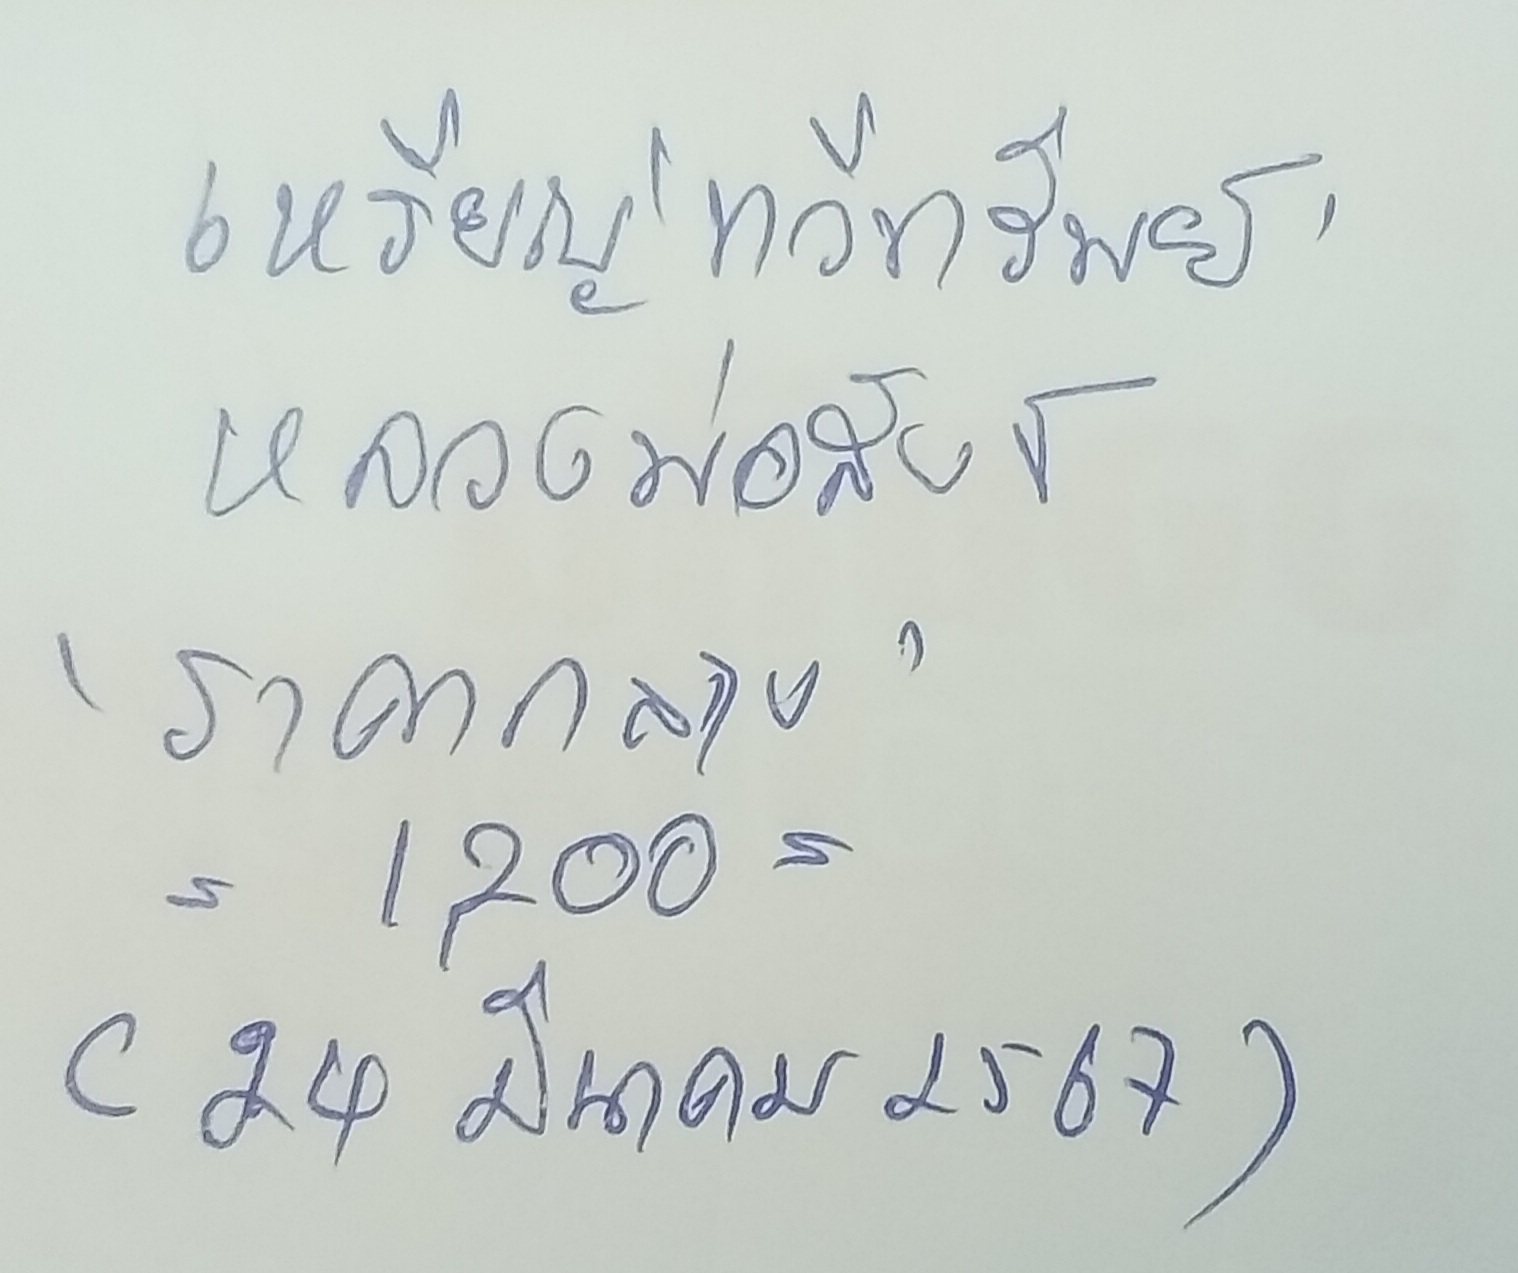 เหรียญ 'ทวีทรัพย์'
หลวงพ่อ
'ราคากลาง'
= 1,200 =
(24 มีนาคม 2567)